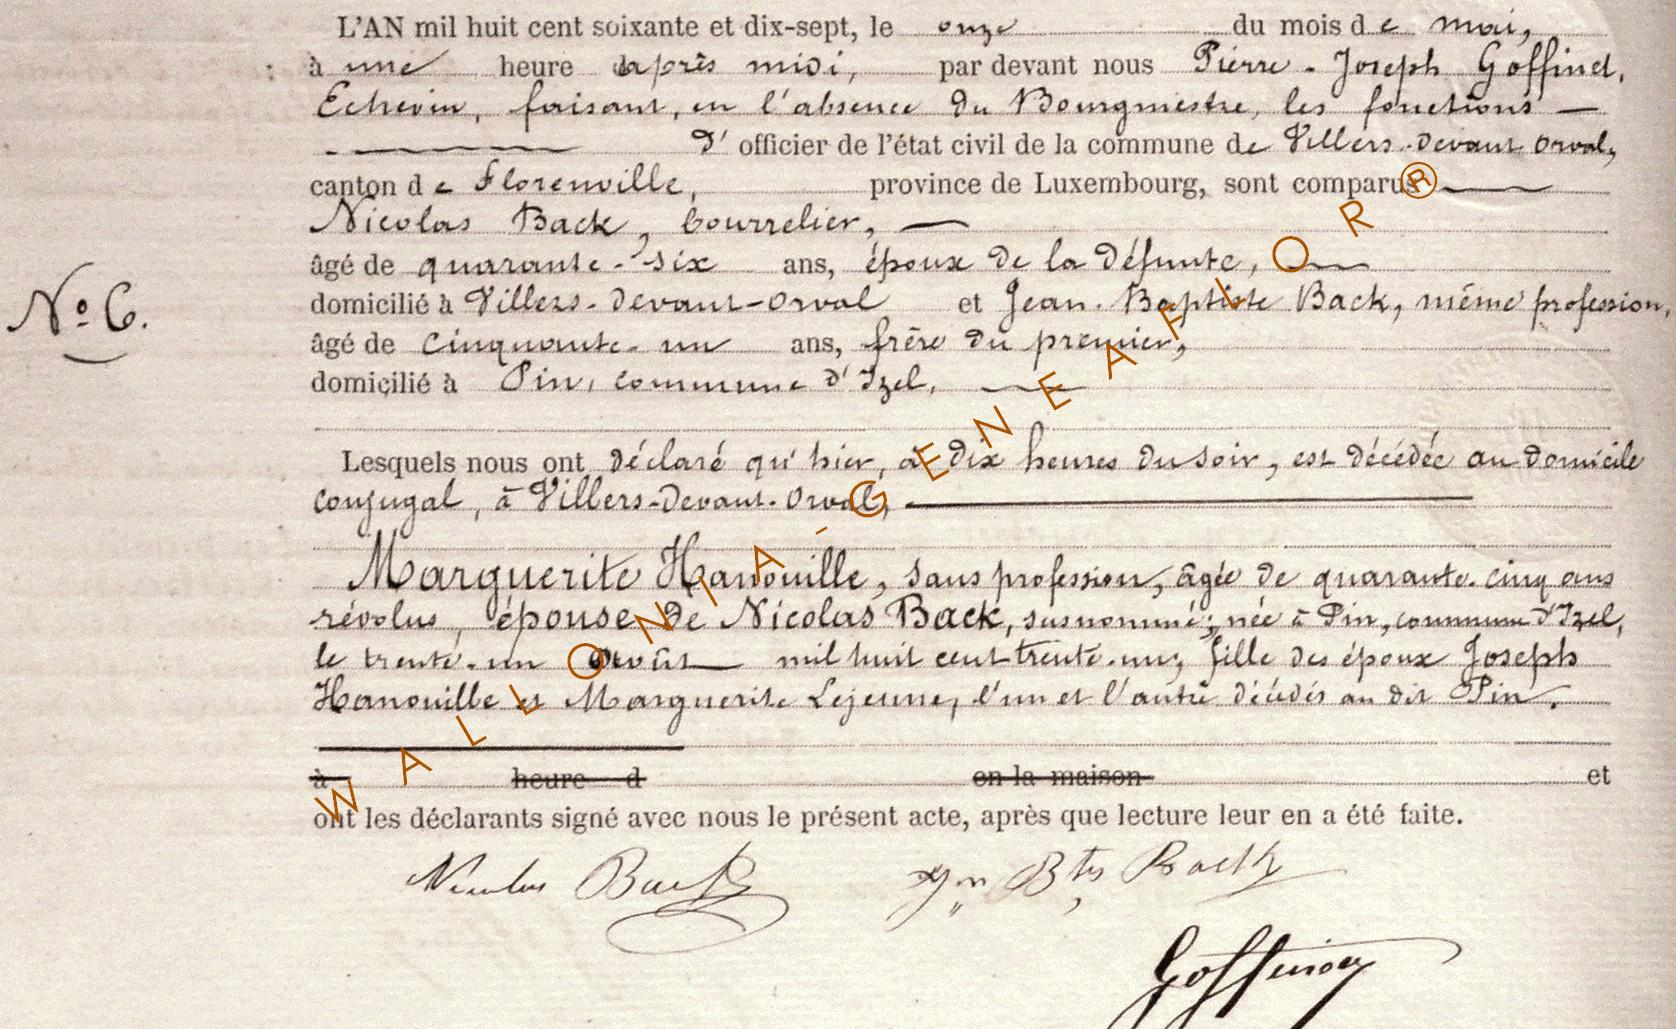 L'AN mil huit cent soixante et dix-sept, le onze du mois de mai,
à une heure après midi, par devant nous Pierre-Joseph Goffinet,
Echevin, faisant, en l'absence du Bourgmestre, les fonctions —
d'officier de l'état civil de la commune de Villers-devant-Orval,
canton de Florenville, province de Luxembourg, sont comparus
Nicolas Back, bourrelier, —
âgé de quarante-six ans, époux de la défunte,
N° 6.
domicilié à Villers-devant-Orval et Jean-Baptiste Back, même profession,
âgé de cinquante-un ans, frère du premier,
domicilié à Pin, commune d'Izel,
Lesquels nous ont déclaré qu'hier, à dix heures du soir, est décédée au domicile
conjugal, à Villers-devant-Orval,
Marguerite Hanouille, sans profession, âgée de quarante-cinq ans
révolus, épouse de Nicolas Back, susnommé; née à Pin, commune d'Izel,
le trente-un Août mil huit cent trente-un, fille des époux Joseph
Hanouille et Marguerite Lejeune, l'un et l'autre décédés au dit Pin.
à heure d en la maison et
ont les déclarants signé avec nous le présent acte, après que lecture leur en a été faite.
Nicolas Back Jn Bte Back
Goffinet
WALLONIA-GENEAFLOR®